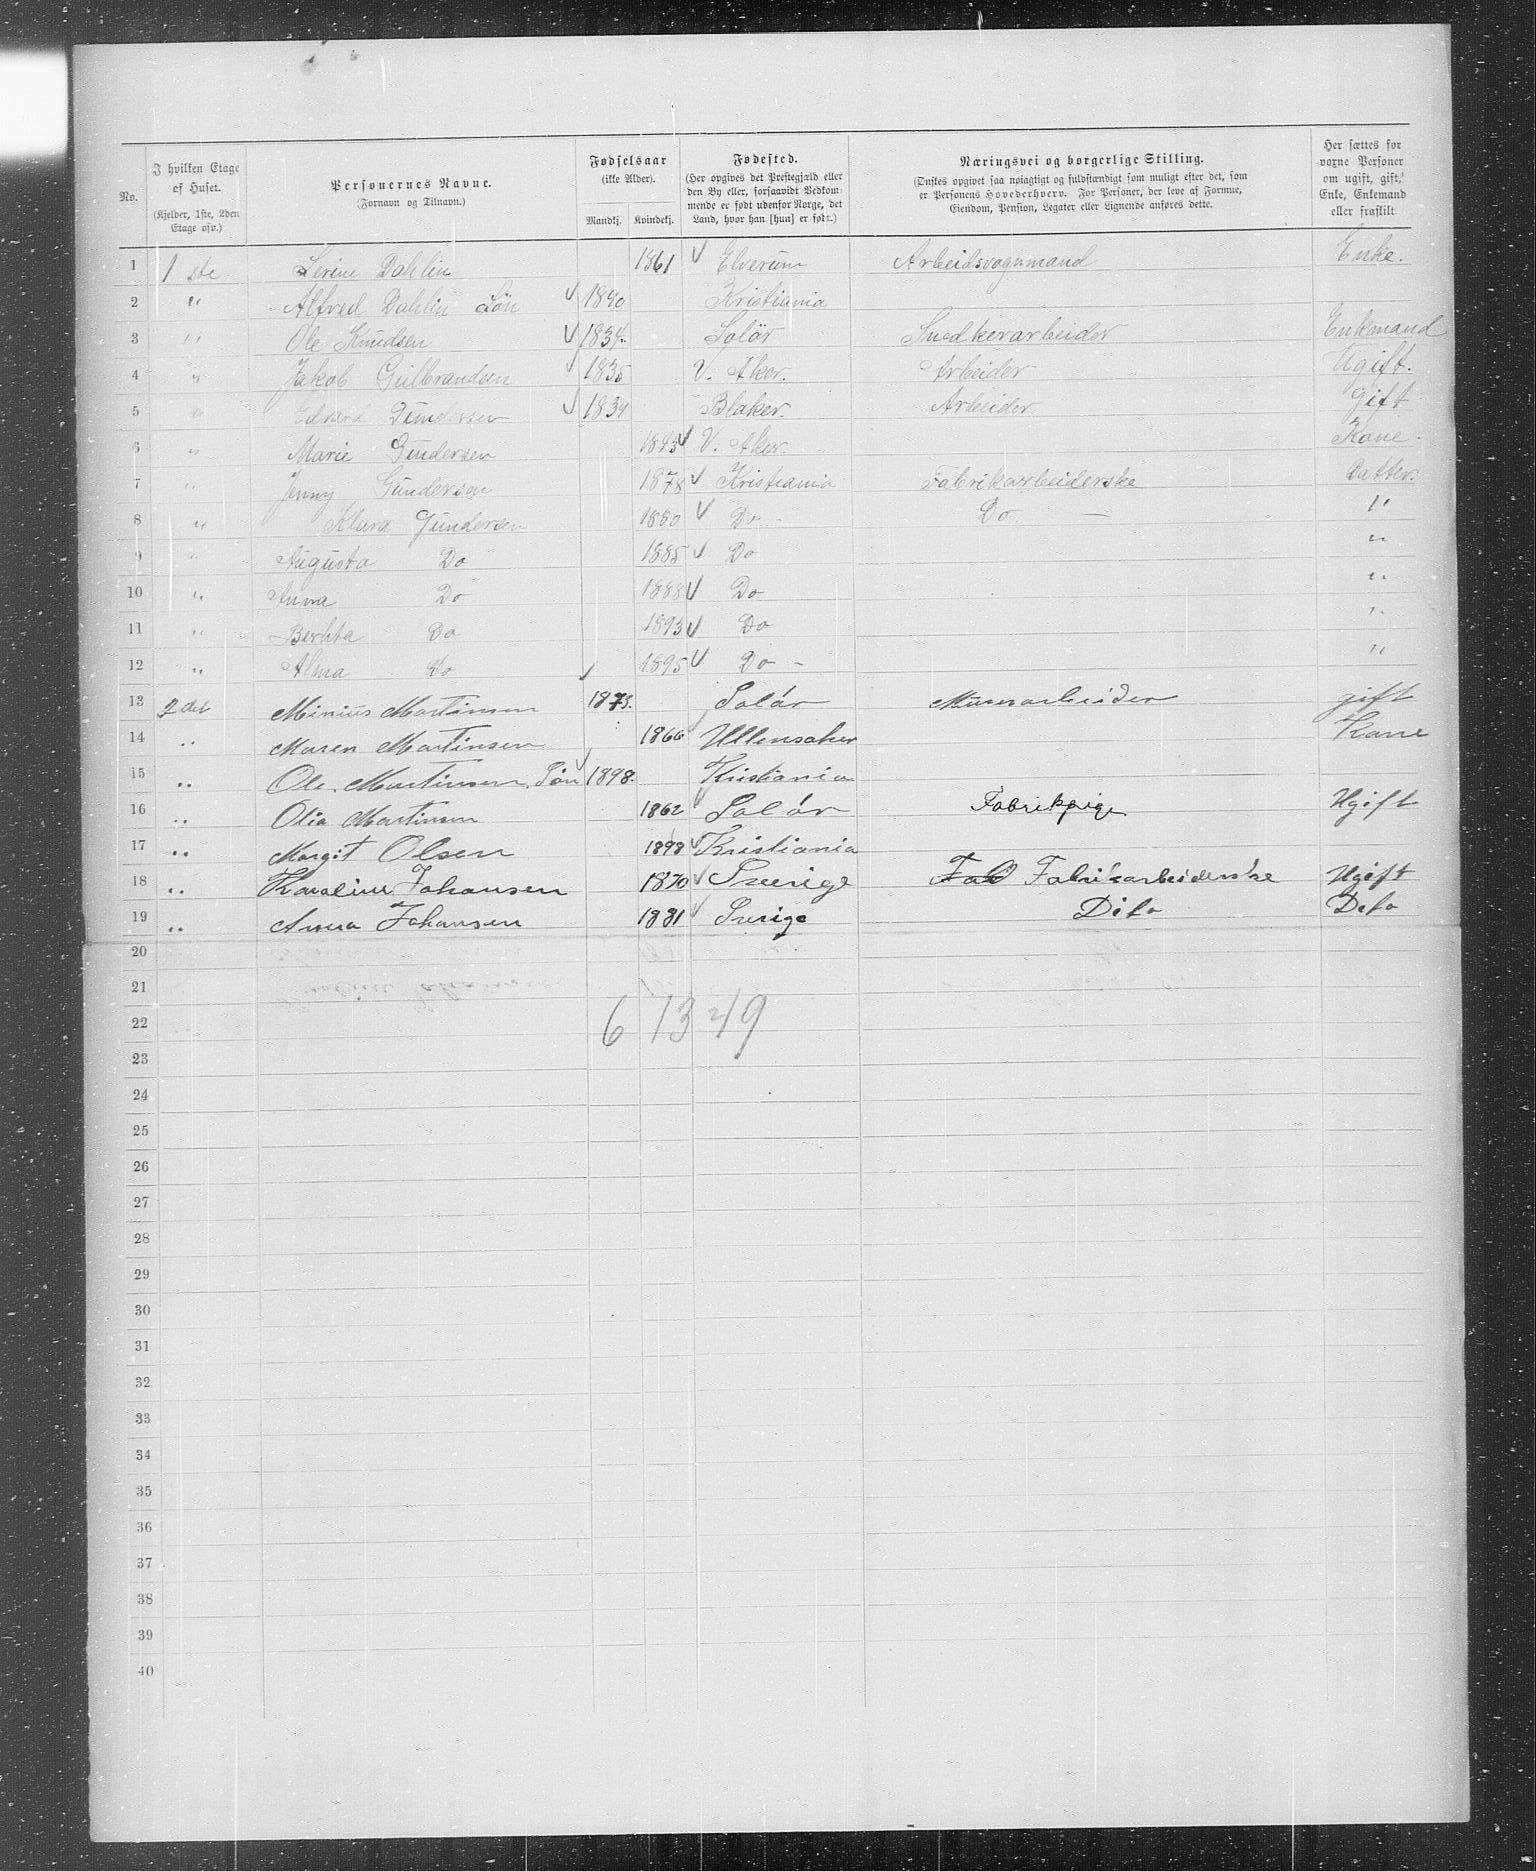 No.
I hvilken Etage af Huset.
(Kjelder, 1ste, 2den Etage osv.)
Personernes Navne.
(Fornavn og Tilnavn.)
Fødselsaar
(ikke Alder).
Mandkj. Kvindekj.
Fødested.
(Her opgives det Prestegjæld eller den By eller, forsaavidt Vedkommende er født udenfor Norge, det Land, hvor han [hun] er født.)
Næringsvei og borgerlige Stilling.
(Ønskes opgivet saa nøiagtigt og fuldstændigt som muligt efter det, som er Personens Hovederhverv. For Personer, der leve af Formue, Eiendom, Pension, Legater eller Lignende anføres dette.
Her sættes for voxne Personer om ugift, gift, Enke, Enkemand eller fraskilt
1 1 ste Serine Dahlin 1861 √ Elverum Arbeidsvognmand Enke.
2 " Alfred Dahlin Sön √ 1890 Kristiania
3 " Ole Knudsen √ 1834. Solör Snedkerarbeider Enkmand
4 " Jakob Gulbrandsen √ 1835 V. Aker. Arbeider Ugift.
5 " Edvard Gundersen √ 1834 Blaker. Arbeider Gift
6 " Marie Gundersen 1843 √ V. Aker. Kone.
7 " Jenny Gundersen 1878 √ Kristiania Fabrikarbeiderske Datter.
8 " Klara Gundersen 1880 √ Do - Do - "
9 " Augusta Do 1885 √ Do "
10 " Anna Do 1888 √ Do "
11 " Berhta Do 1893 √ Do "
12 " Alma Do 1895 √ Do - "
13 2 det Minius Martinsen √ 1873. Solör Murerarbeider gift
14 " Maren Martinsen 1866 Ullensaker Kone
15 " Ole. Martinsen. Søn √ 1898. Kristiania
16 " Olia Martinsen 1862 √ Solör Fabrikpige Ugift
17 " Margit Olsen 1898 √ Kristiania
18 " Karoline Johansen 1870 √ Sverige Fab Fabrikarbeiderske Ugift
19 " Anna Johansen 1881 √ Sverige Dito Dito
20
21
22 6 13 = 19
23
24
25
26
27
28
29
30
31
32
33
34
35
36
37
38
39
40